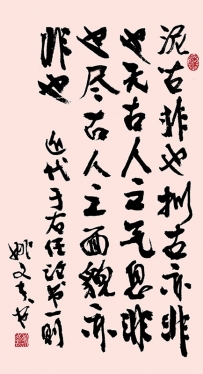 泥古非也拟古亦非
也无古人之气息非
也尽古人之面貌亦
非也
近代于右任诗第一则
姚文奎书